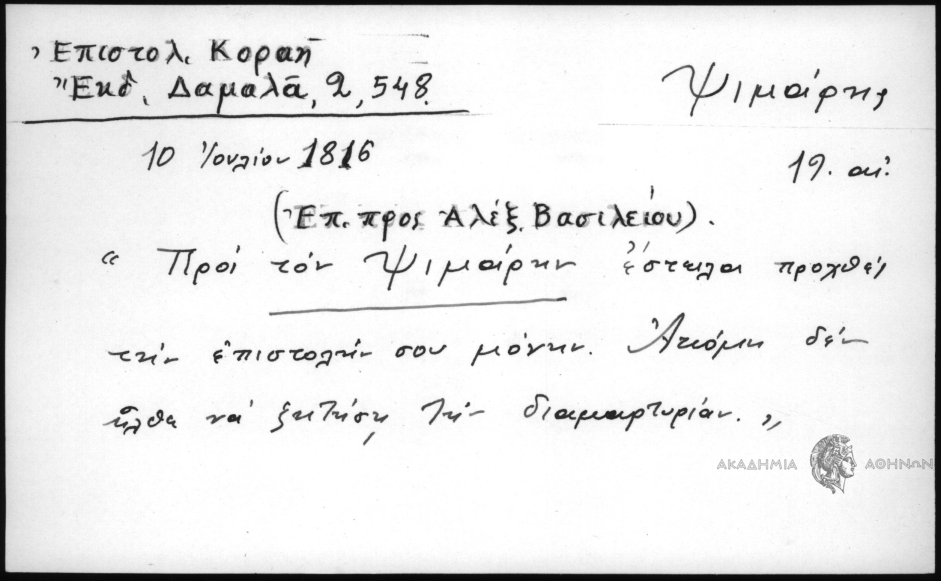 Ἐπιστολ. Κοραῆ
Ἔκδ. Δαμαλᾶ, 2, 548.
Ψιμάρης
10 Ἰουλίου 1816
19. αἰ.
(Ἐπ. προς Ἀλέξ. Βασιλείου).
“ Πρὸς τὸν Ψιμάρην ἔστειλα προχθές
τὴν ἐπιστολήν σου μόνην. Ἀκόμη δέν
ἦλθε νά ζητήσῃ τὴν διαμαρτυρίαν. „
ΑΚΑΔΗΜΙΑ ΑΘΗΝΩΝ